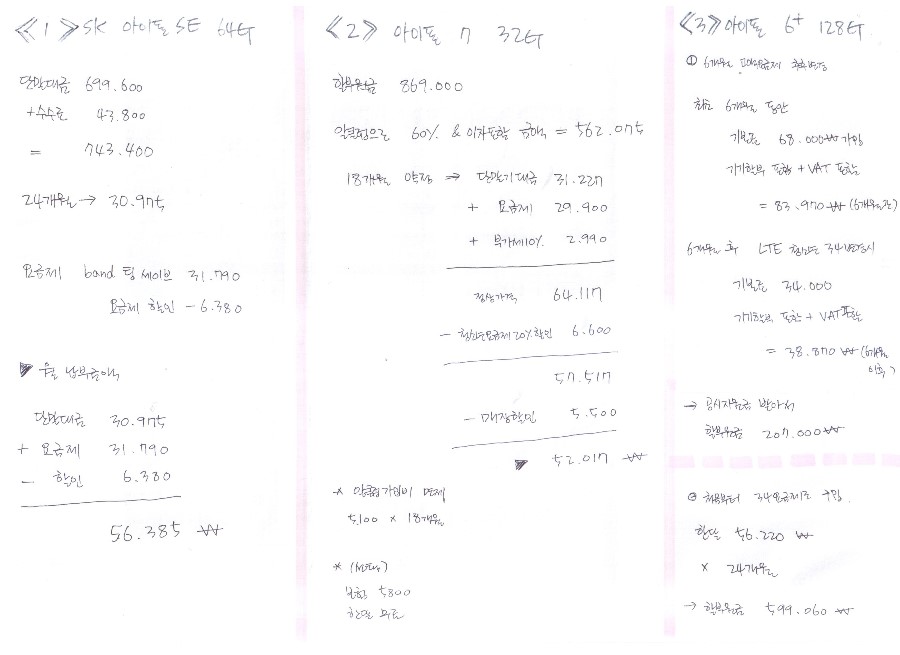 《1》 SK 아이폰 SE 64G
단말대금 699.600
+수수료 43.800
= 743.400
24개월 → 30.975
요금제 band 팅 세이브 31.790
요금제 할인 - 6.380
▼ 월 납부금액
단말대금 30.975
+ 요금제 31.790
- 할인 6.380
56.385 ₩
《2》 아이폰 7 32G
할부원금 869.000
일정으로 60% & 이자포함 금액 = 562.075
18개월 약정 ⇒ 단말기대금 31.227
+ 요금제 29.900
+ 부가세10% 2.990
정상가격 64.117
- 청소년요금제20%할인 6.600
57.517
- 매장할인 5.500
▼ 52.017 ₩
* 가입비 면제
5,100 × 18개월
*
보험 5800
한달 무료
《3》 아이폰 6+ 128G
① 6개월 요금제
최초 6개월 동안
기본료 68.000₩ 가입
기기할부 포함 + VAT 포함
= 83.970 ₩ (6개월간)
6개월 후 LTE 청소년 34변경시
기본료 34.000
기기할부 포함 + VAT포함
= 38.870 ₩ (6개월
이후)
→ 공시지원금 받아서
할부원금 207.000₩
② 처음부터 34요금제로 구입
한달 56.220 ₩
× 24개월
→ 할부원금 599.060 ₩